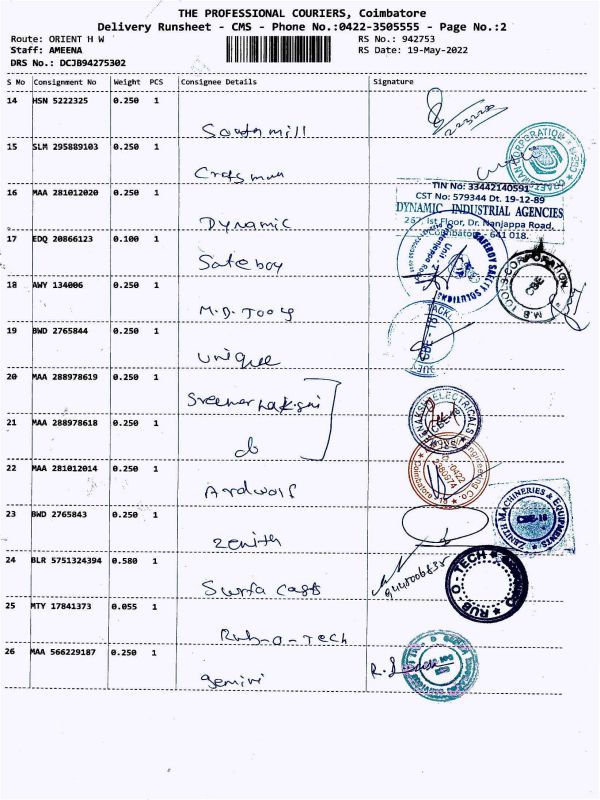 THE PROFESSIONAL COURIERS, Coimbatore
Delivery Runsheet - CMS - Phone No.:0422-3505555 - Page No.:2
Route: ORIENT H W RS No.: 942753
Staff: AMEENA RS Date: 19-May-2022
DRS No.: DCJB94275302
S No Consignment No Weight PCS Consignee Details Signature
14 HSN 5222325 0.250 1
South mill
15 SLM 295889103 0.250 1
Craftsman
16 MAA 281012020 0.250 1
TIN No: 33442140591
CST No: 579344 Dt. 19-12-89
DYNAMIC INDUSTRIAL AGENCIES
Ist Floor, Dr. Nanjappa Road,
Coimbatore - 641 018.
Dynamic
17 EDQ 20866123 0.100 1
SAFEBOY SAFETY SOLUTIONS
Safeboy
18 AWY 134006 0.250 1
M.B. TOOLS CORPORATION
CBE
M.B. Tools
19 BWD 2765844 0.250 1
CBE - 18
unique
20 MAA 288978619 0.250 1
Sreemenakshi
21 MAA 288978618 0.250 1
do
22 MAA 281012014 0.250 1
Coimbatore
23 BWD 2765843 0.250 1
ZENITH MACHINERIES & EQUIPMENTS
CBE-18
Zenith
24 BLR 5751324394 0.580 1
Surfa Coats
25 MTY 17841373 0.055 1
RUB-O-TECH
Rub-o-Tech
26 MAA 566229187 0.250 1
gemini